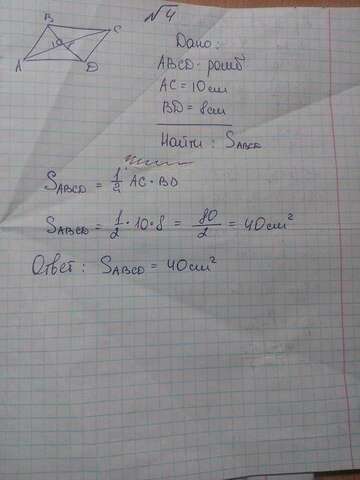 √4
B
C
10
A
D
Дано:
ABCD - ромб
AC = 10 см
BD = 8 см
Найти: S ABCD
S ABCD = 1/2 AC · BD
S ABCD = 1/2 · 10 · 8 = 80/2 = 40 см²
Ответ: S ABCD = 40 см²